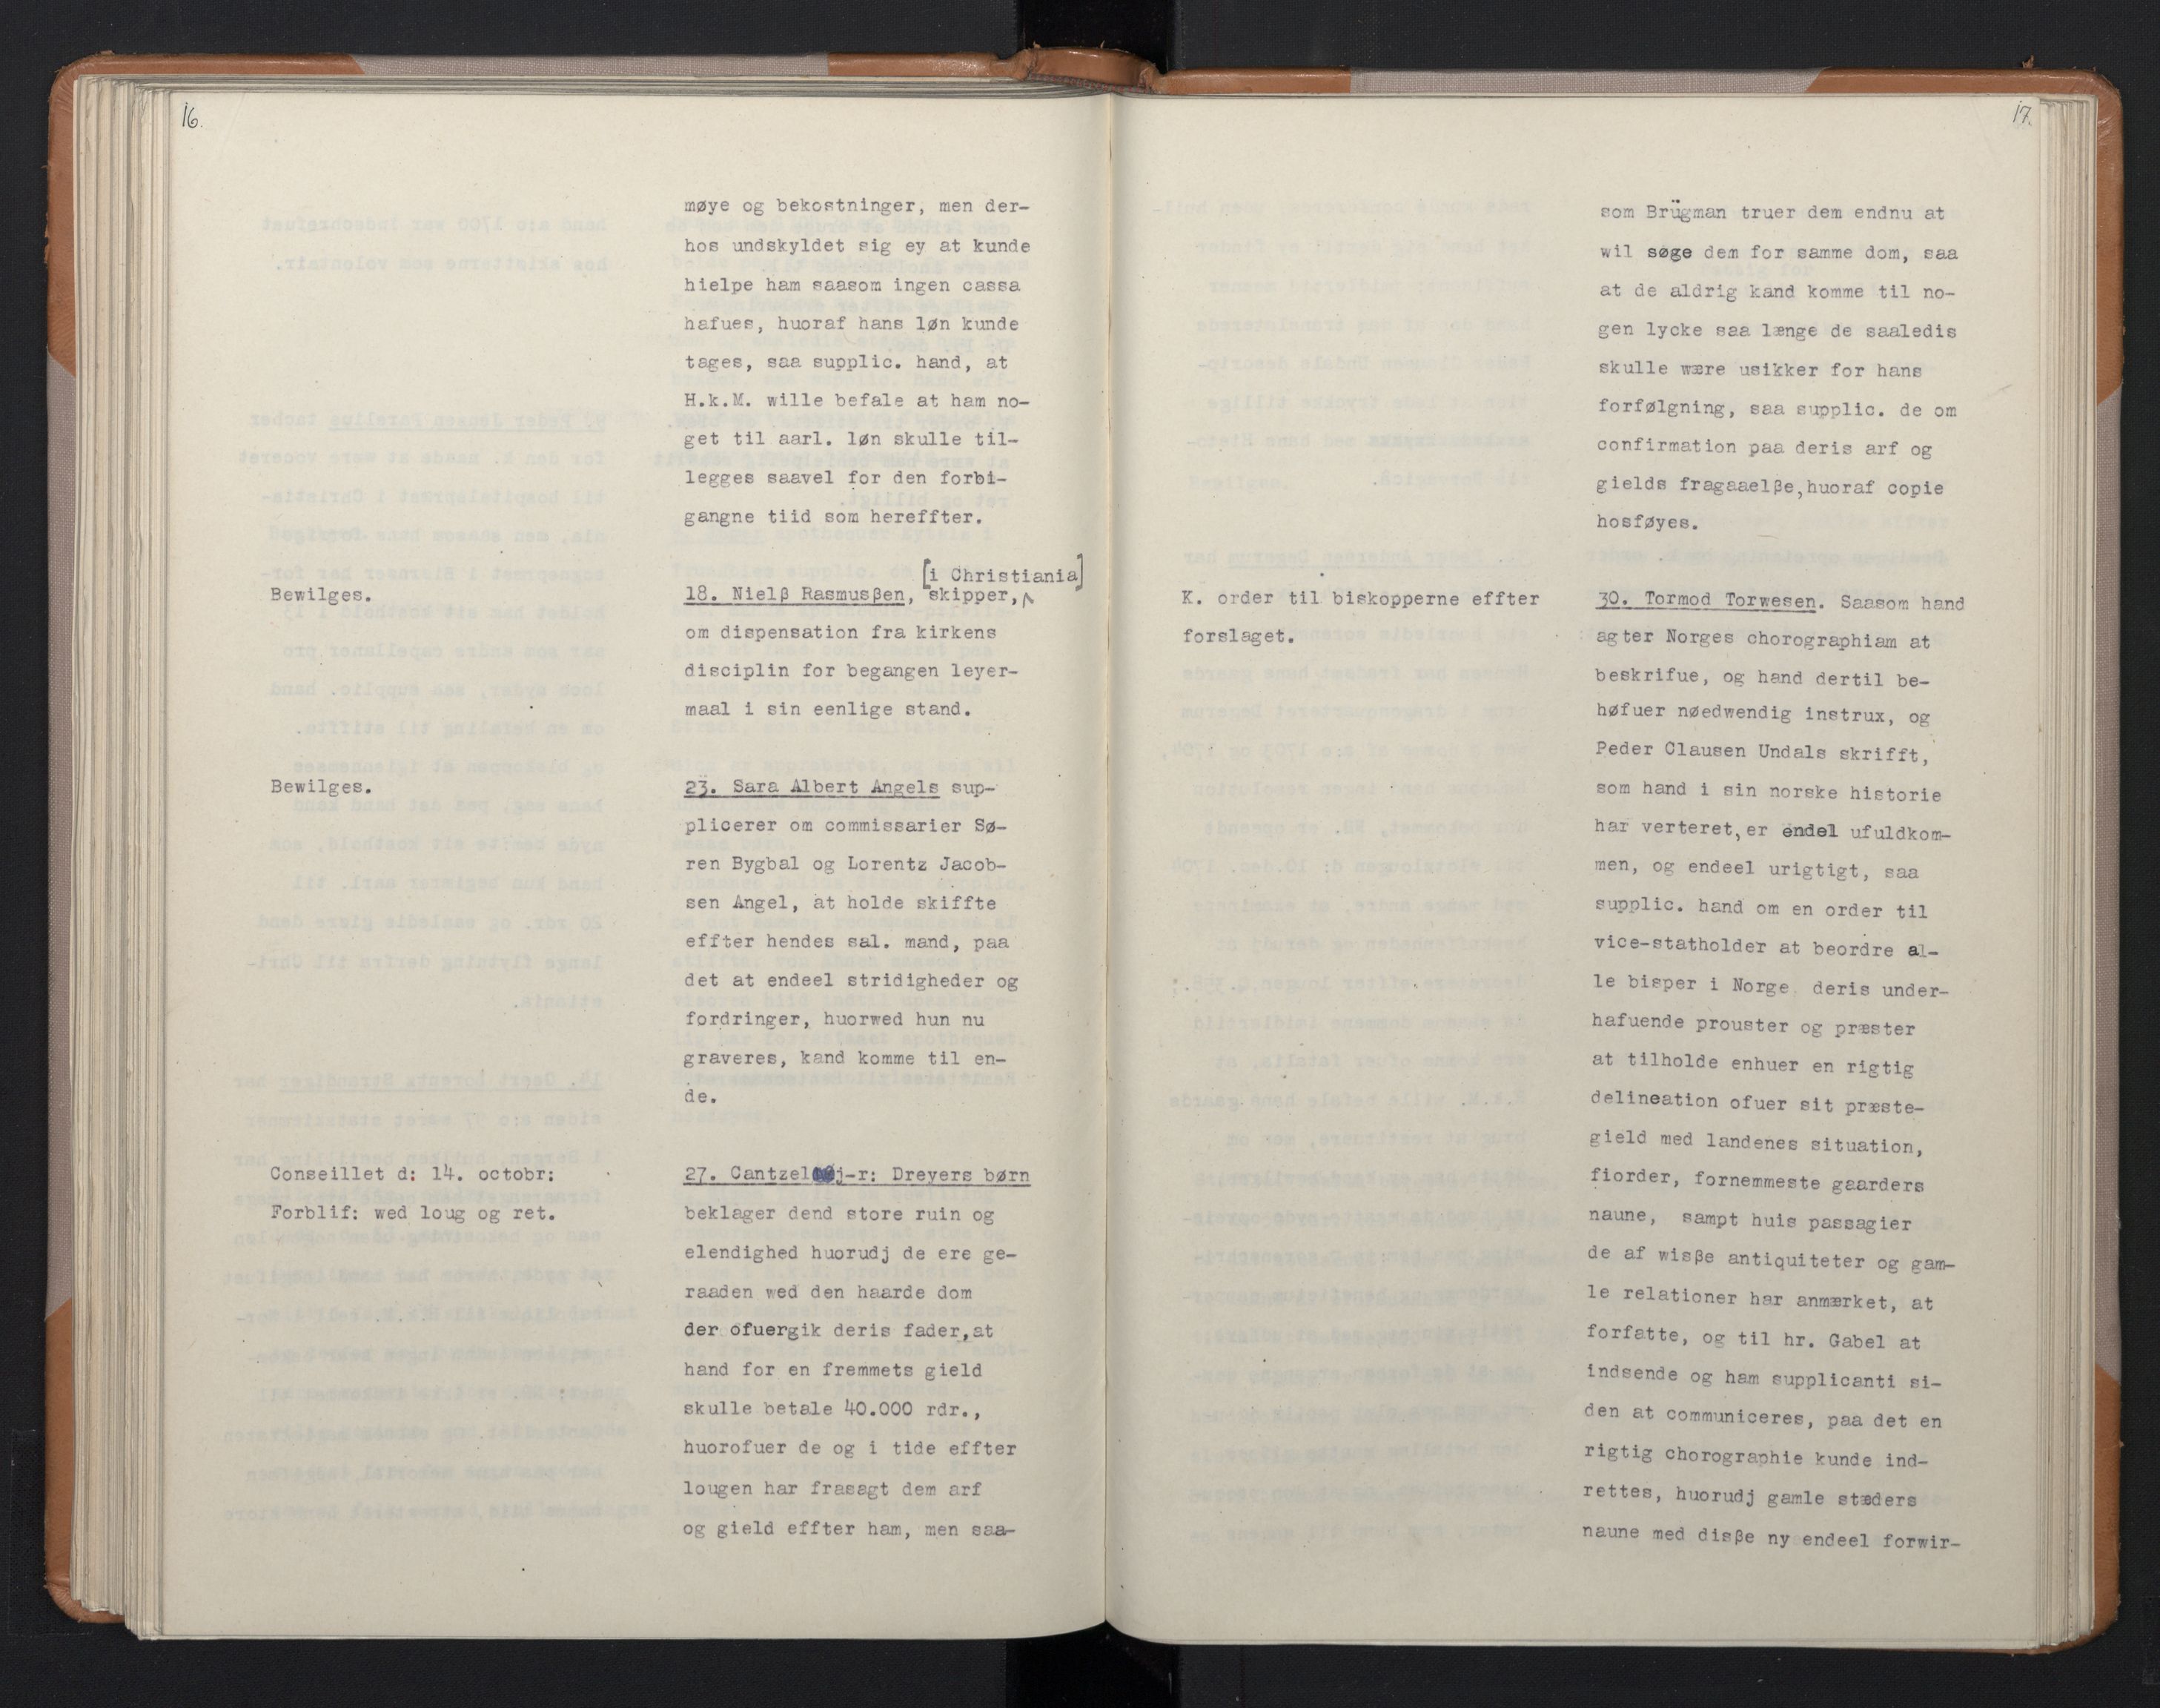 16.
møye og bekostninger, men der-
hos undskyldet sig ey at kunde
hielpe ham saasom ingen cassa
hafues, huoraf hans løn kunde
tages, saa supplic. hand, at
H.k.M. wille befale at ham no-
get til aarl. løn skulle til-
legges saavel for den forbi-
gangne tiid som hereffter.
Bewilges.
[i Christiania]
18. Nielβ Rasmusβen, skipper,
om dispensation fra kirkens
disciplin for begangen leyer-
maal i sin eenlige stand.
Bewilges.
23. Sara Albert Angels sup-
plicerer om commissarier Sø-
ren Bygbal og Lorentz Jacob-
sen Angel, at holde skiffte
effter hendes sal. mand, paa
det at endeel stridigheder og
fordringer, huorwed hun nu
graveres, kand komme til en-
de.
Conseillet d: 14. octobr:
Forblif: wed loug og ret.
27. Cantzeløj-r: Dreyers børn
beklager dend store ruin og
elendighed huorudj de ere ge-
raaden wed den haarde dom
der ofuergik deris fader,at
hand for en fremmets gield
skulle betale 40.000 rdr.,
huorofuer de og i tide effter
lougen har frasagt dem arf
og gield effter ham, men saa-
17.
som Brügman truer dem endnu at
wil søge dem for samme dom, saa
at de aldrig kand komme til no-
gen lycke saa længe de saaledis
skulle wære usikker for hans
forfølgning, saa supplic. de om
confirmation paa deris arf og
gields fragaaelβe,huoraf copie
hosføyes.
K. order til biskopperne effter
forslaget.
30. Tormod Torwesen. Saasom hand
agter Norges chorographiam at
beskrifue, og hand dertil be-
høfuer nøedwendig instrux, og
Peder Clausen Undals skrifft,
som hand i sin norske historie
har verteret,er endel ufuldkom-
men, og endeel urigtigt, saa
supplic. hand om en order til
vice-statholder at beordre al-
le bisper i Norge deris under-
hafuende prouster og præster
at tilholde enhuer en rigtig
delineation ofuer sit præste-
gield med landenes situation,
fiorder, fornemmeste gaarders
naune, sampt huis passagier
de af wisβe antiquiteter og gam-
le relationer har anmærket, at
forfatte, og til hr. Gabel at
indsende og ham supplicanti si-
den at communiceres, paa det en
rigtig chorographie kunde ind-
rettes, huorudj gamle stæders
naune med disβe ny endeel forwir-